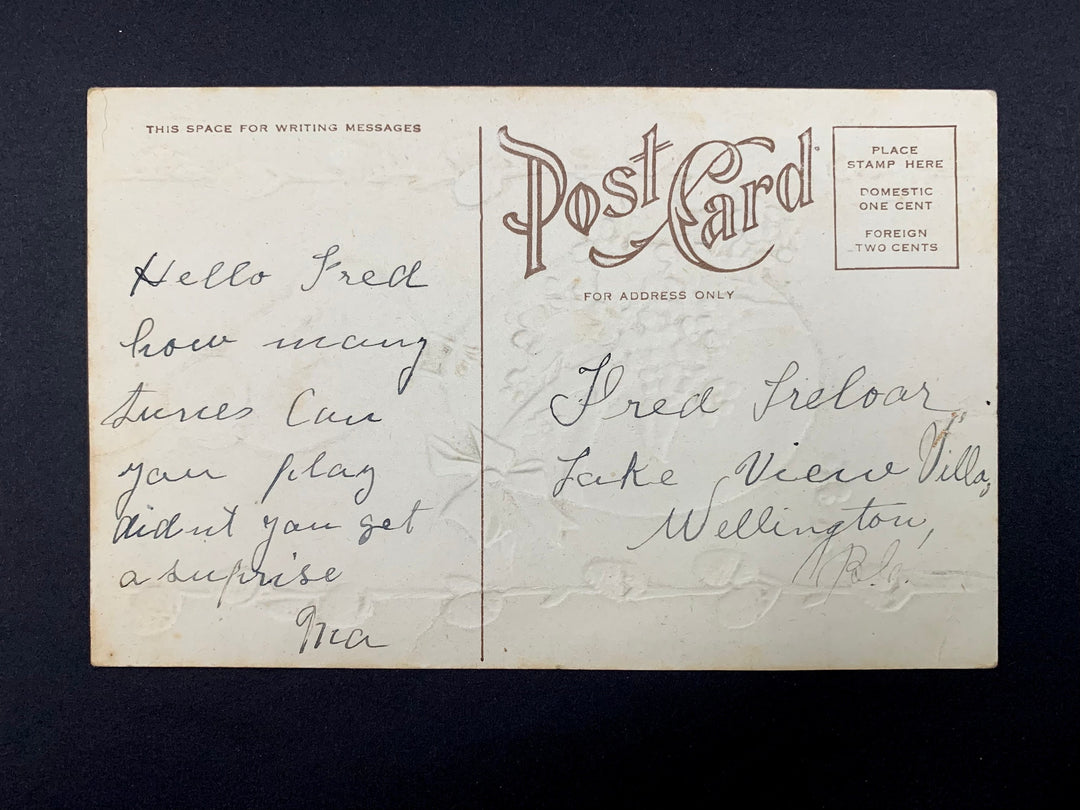 THIS SPACE FOR WRITING MESSAGES
Hello Fred
how many
tunes Can
you play
didnt you get
a suprise
Ma
Post Card
FOR ADDRESS ONLY
PLACE
STAMP HERE
DOMESTIC
ONE CENT
FOREIGN
TWO CENTS
Fred Treloar
Lake View Villa,
Wellington,